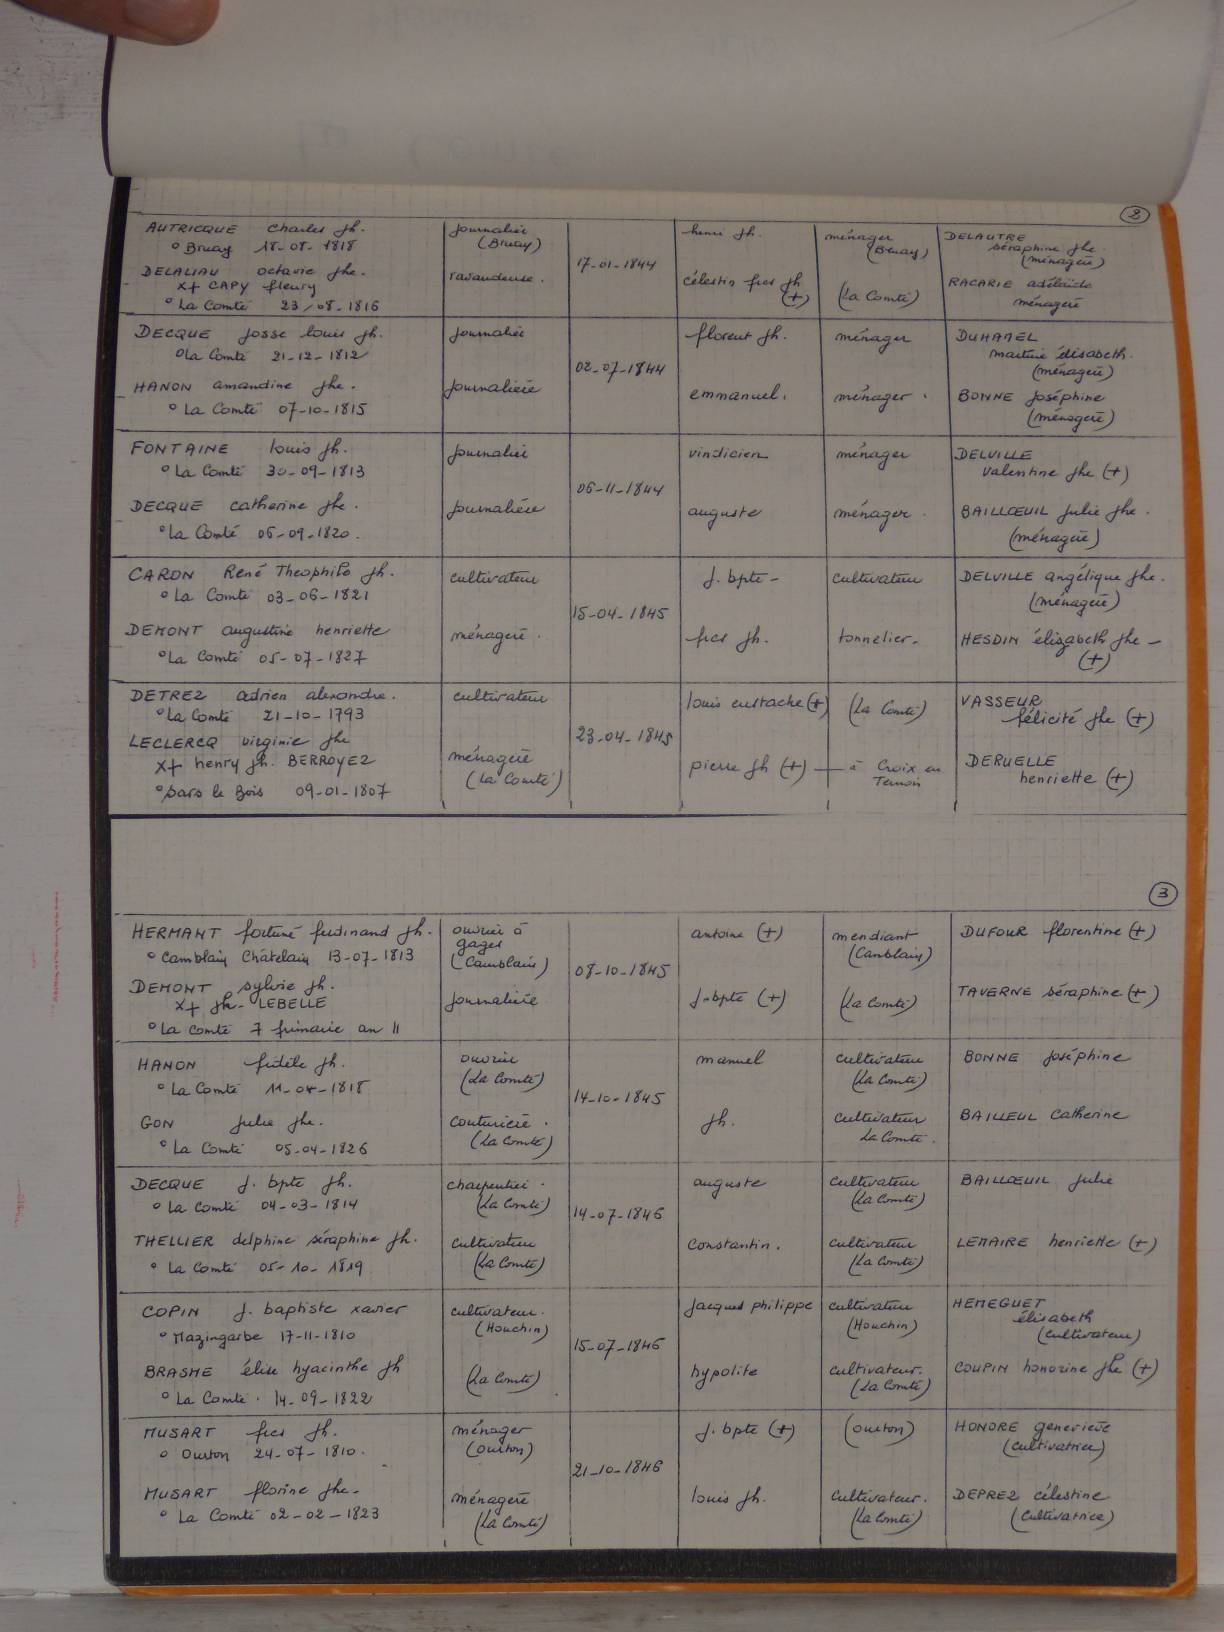 2
AUTRICQUE Charles Jh. journalier henri Jh. ménager DELAUTRE
° Bruay 18-08-1818 (Bruay) (Bruay) séraphine Jhe.
17-01-1844 (ménagère)
DELALIAU octavie Jhe. ravaudeuse. célestin frcs Jh (La Comté) RACARIE adélaïde
x+ CAPY fleury (+) ménagère
° La Comté 23-08-1816
DECQUE Josse louis Jh. journalier florent Jh. ménager DUHAMEL
° La Comté 21-12-1812 élisabeth.
02-07-1844 (ménagère)
HANON amandine Jhe. journalière emmanuel. ménager. BONNE Joséphine
° La Comté 07-10-1815 (ménagère)
FONTAINE louis Jh. journalier vindicien ménager DELVILLE
° La Comté 30-09-1813 valentine Jhe (+)
06-11-1844
DECQUE catherine Jhe. journalière auguste ménager. BAILLŒUIL Julie Jhe.
° La Comté 06-09-1820. (ménagère)
CARON René Théophile Jh. cultivateur J. bpte - cultivateur DELVILLE angélique Jhe.
° La Comté 03-06-1821 (ménagère)
15-04-1845
DEMONT augustine henriette ménagère. frcs Jh. tonnelier. HESDIN élizabeth Jhe -
° La Comté 05-07-1827 (+)
DETREZ adrien alexandre. cultivateur louis eustache (+) (La Comté) VASSEUR
° La Comté 21-10-1793 félicité Jhe (+)
23-04-1845
LECLERCQ virginie Jhe ménagère pierre Jh (+) — à Croix en DERUELLE
x+ henry Jh. BERROYEZ (La Comté) Ternois henriette (+)
° sars le Bois 09-01-1807
3
HERMANT fortuné ferdinand Jh. ouvrier à antoine (+) mendiant DUFOUR florentine (+)
° Camblain Châtelain 13-07-1813 gages (Camblain)
(Camblain) 08-10-1845
DEMONT sylvie Jh. journalière J-bpte (+) (La Comté) TAVERNE séraphine (+)
x+ Jh - LEBELLE
° La Comté 7 frimaire an 11
HANON fidèle Jh. ouvrier manuel cultivateur BONNE Joséphine
° La Comté 11-04-1818 (La Comté) (La Comté)
14-10-1845
GON Julie Jhe. couturière. Jh. cultivateur BAILLEUL Catherine
° La Comté 05-04-1826 (La Comté) La Comté.
DECQUE J. bpte Jh. charpentier. auguste cultivateur BAILLŒUIL Julie
° La Comté 04-03-1814 (La Comté) (La Comté)
14-07-1846
THELLIER delphine séraphine Jh. cultivateur constantin. cultivateur LEMAIRE henriette (+)
° La Comté 05-10-1819 (La Comté) (La Comté)
COPIN J. baptiste xavier cultivateur. Jacques philippe cultivateur HEMEGUET
° Mazingarbe 17-11-1810 (Houchin) (Houchin) élisabeth
15-07-1846 (cultivateur)
BRASME élise hyacinthe Jh (La Comté) hypolite cultivateur. COUPIN honorine Jhe (+)
° La Comté. 14-09-1822 (La Comté)
MUSART frcs Jh. ménager J. bpte (+) (Ourton) HONORE geneviève
° Ourton 24-07-1810. (Ourton) (cultivatrice)
21-10-1846
MUSART florine Jhe. ménagère louis Jh. cultivateur. DEPREZ célestine
° La Comté 02-02-1823 (La Comté) (La Comté) (cultivatrice)